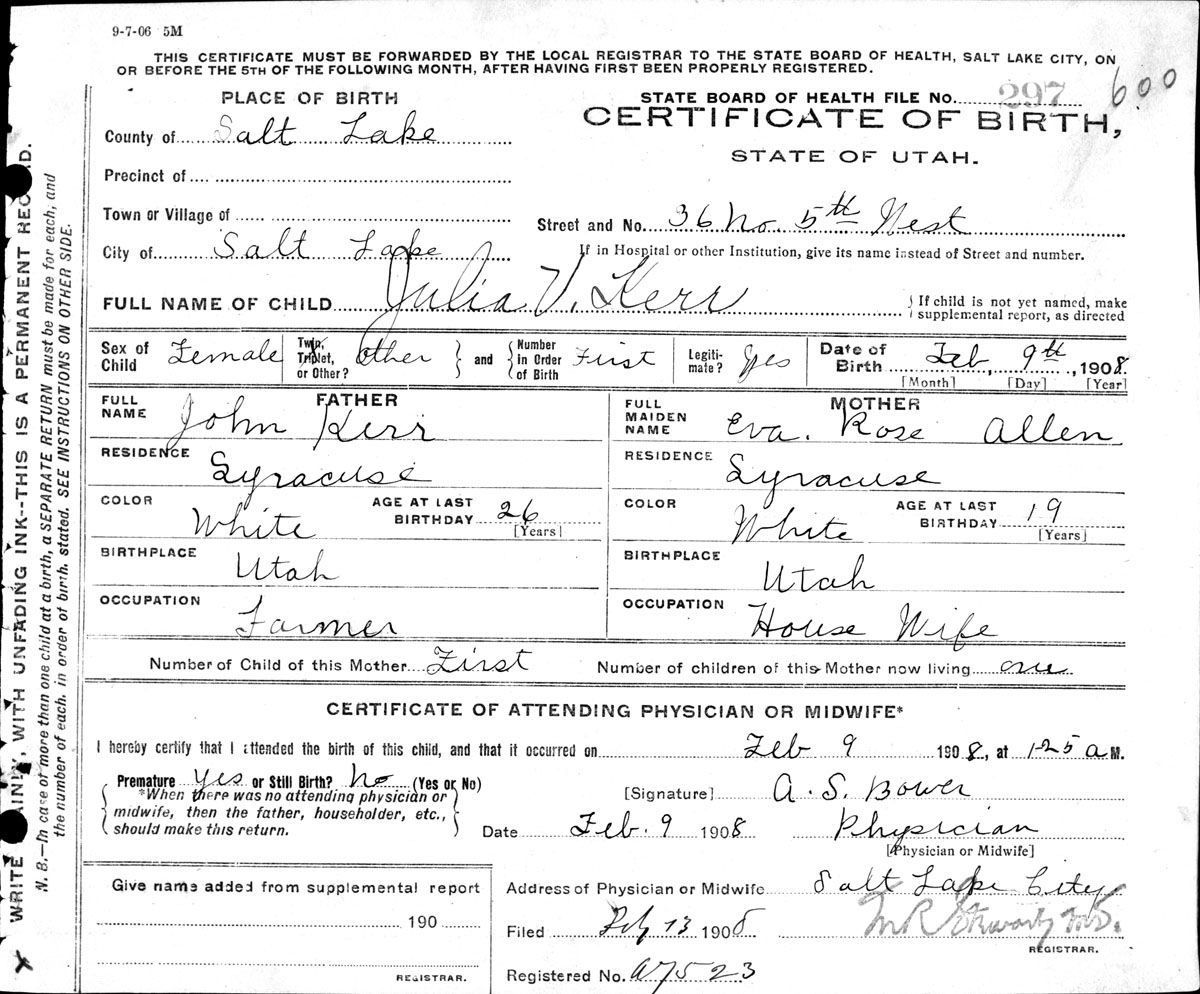 9-7-06 5M
THIS CERTIFICATE MUST BE FORWARDED BY THE LOCAL REGISTRAR TO THE STATE BOARD OF HEALTH, SALT LAKE CITY, ON
OR BEFORE THE 5TH OF THE FOLLOWING MONTH, AFTER HAVING FIRST BEEN PROPERLY REGISTERED.
STATE BOARD OF HEALTH FILE No. 297 600
CERTIFICATE OF BIRTH,
STATE OF UTAH.
PLACE OF BIRTH
County of Salt Lake
Precinct of
Town or Village of
City of Salt Lake
Street and No. 36 No. 5th West
If in Hospital or other Institution, give its name instead of Street and number.
FULL NAME OF CHILD Julia V. Kerr
If child is not yet named, make
supplemental report, as directed
Sex of Child Female
Twin, Triplet, or Other? Other
and Number in Order of Birth First
Legitimate? Yes
Date of Birth Feb, 9th, 1908.
[Month] [Day] [Year]
FATHER
FULL NAME John Kerr
RESIDENCE Syracuse
COLOR White
AGE AT LAST BIRTHDAY 26
[Years]
BIRTHPLACE Utah
OCCUPATION Farmer
MOTHER
FULL MAIDEN NAME Eva. Rose Allen
RESIDENCE Syracuse
COLOR White
AGE AT LAST BIRTHDAY 19
[Years]
BIRTHPLACE Utah
OCCUPATION House Wife
Number of Child of this Mother First
Number of children of this Mother now living one
CERTIFICATE OF ATTENDING PHYSICIAN OR MIDWIFE*
I hereby certify that I attended the birth of this child, and that it occurred on Feb 9 1908, at 1-25 a M.
Premature Yes or Still Birth? No (Yes or No)
*When there was no attending physician or
midwife, then the father, householder, etc.,
should make this return.
[Signature] A. S. Bower
Date Feb. 9 1908 Physician
[Physician or Midwife]
Give name added from supplemental report
190
REGISTRAR.
Address of Physician or Midwife Salt Lake City
Filed 13 1908
REGISTRAR.
Registered No. a7523
WRITE PLAINLY, WITH UNFADING INK--THIS IS A PERMANENT RECORD.
N. B.—In case of more than one child at a birth, a SEPARATE RETURN must be made for each, and
the number of each, in order of birth, stated. SEE INSTRUCTIONS ON OTHER SIDE.